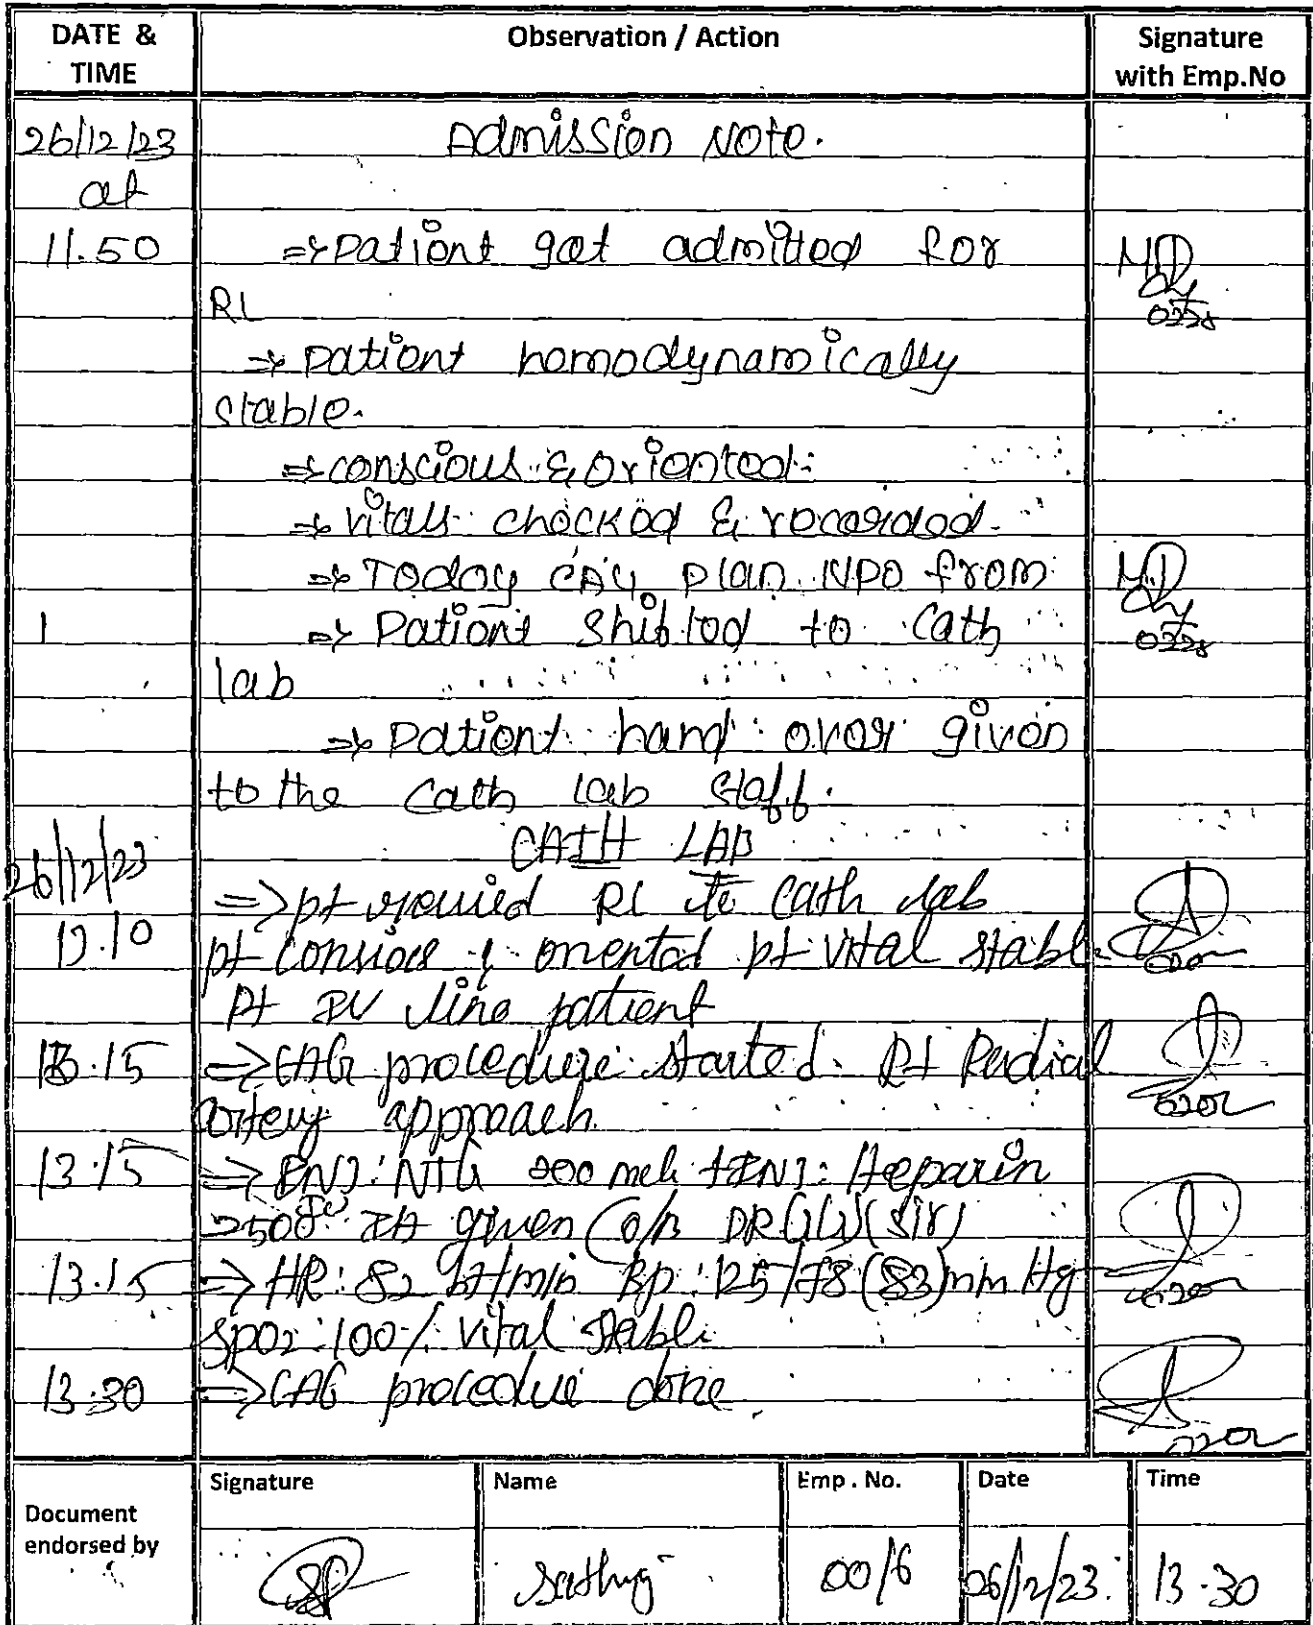 DATE & TIME
Observation / Action
Signature with Emp.No
26/12/23
Admission Note.
at
11.50
=> patient get admitted for
RL
0228
=> patient homodynamically
stable.
=> conscious & oriented.
=> vitals checked & recorded.
=> Today CAG plan NPO from
=> Patient shifted to Cath
0228
lab
=> patient hand over given
to the Cath lab staff.
CATH LAB
26/12/23
=> pt received RL to Cath lab
13.10
pt conscious & oriented pt vital stable
pt IV line patient
13.15
=> CAG procedure started. Rt Radial
artery approach.
13.15
=> INJ: NTG 200 mcg + INJ: Heparin
2500 IU IA given O/B DR (Sir)
13.15
=> HR: 82 bt/min BP: 125/78 (83) mm Hg
SPO2: 100% vital stable
13.30
=> CAG procedure done.
Document endorsed by
Signature
Name
Emp. No.
Date
Time
0016
26/12/23.
13.30